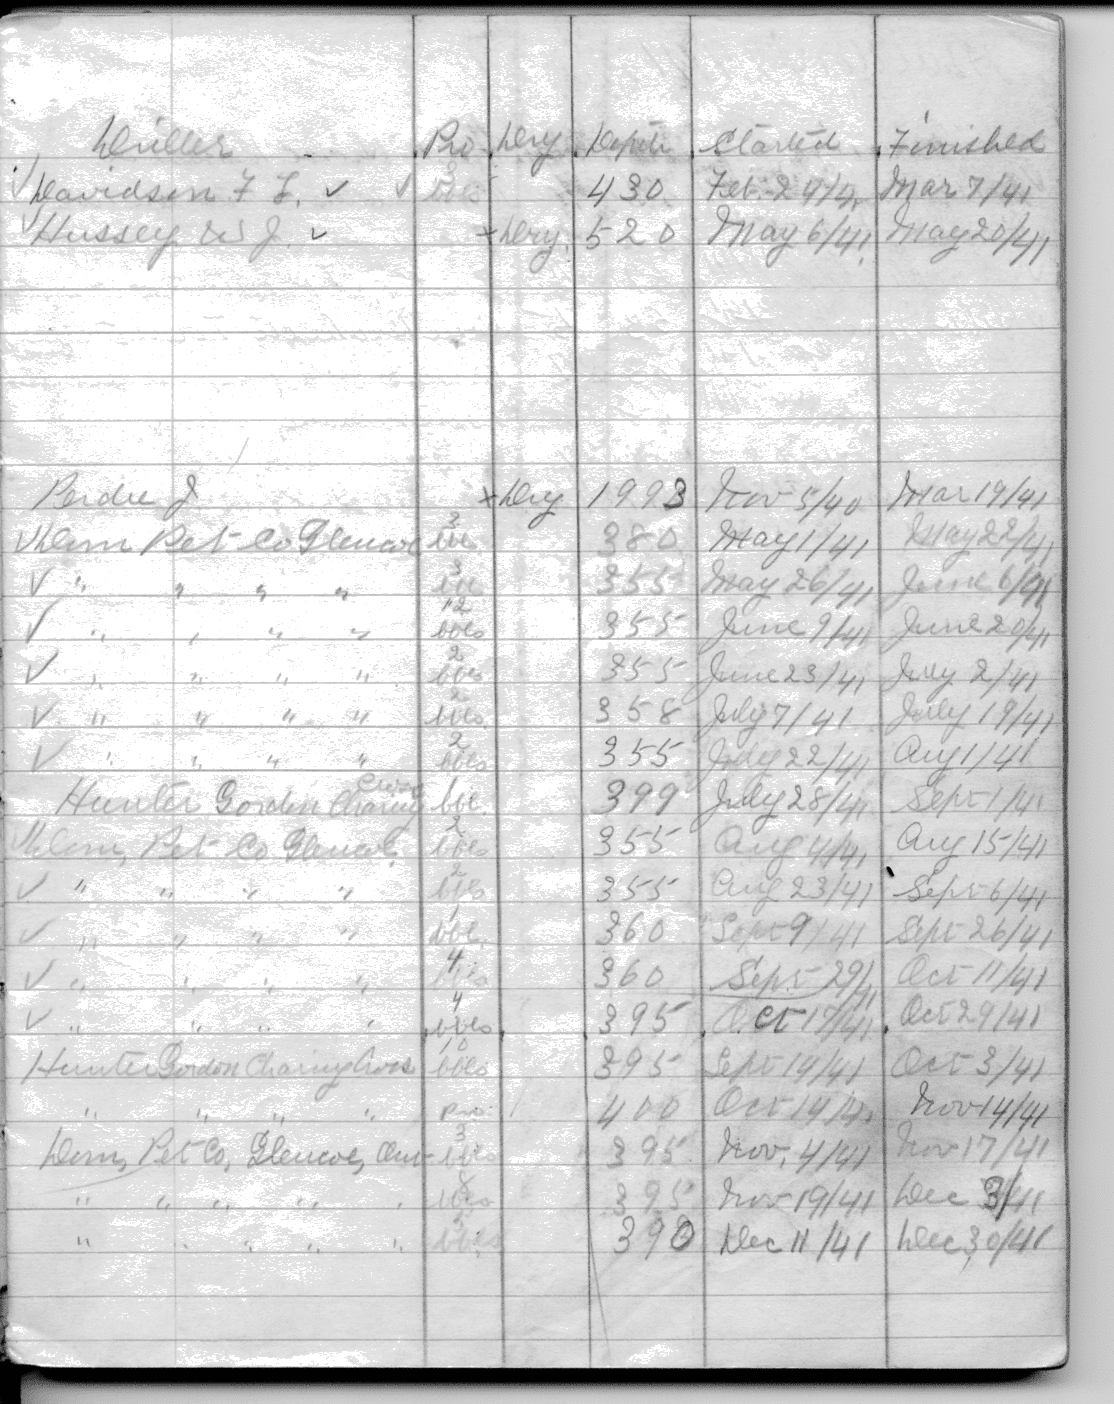 Driller Pro Dry Depth Started Finished
✓ Davidson F F. ✓ ✓ 3 bbls 430 Feb. 24/41 Mar 7/41
✓ Hussey W J. ✓ x Dry. 520 May 6/41 May 20/41
Perdue J x Dry 1993 Nov 5/40 Mar 19/41
✓ Dom Pet Co Glencoe 3 bbls 380 May 1/41 May 22/41
✓ " " " " 3 bbls 355 May 26/41 June 6/41
✓ " " " " 2 bbls 355 June 9/41 June 20/41
✓ " " " " 2 bbls 355 June 23/41 July 2/41
✓ " " " " 2 bbls 358 July 7/41 July 19/41
✓ " " " " 2 bbls 355 July 22/41 Aug 1/41
Hunter Gordon Charing Cross bbl. 399 July 28/41 Sept 1/41
✓ Dom, Pet Co Glencoe. 2 bbls 355 Aug 4/41 Aug 15/41
✓ " " " " 2 bbls 355 Aug 23/41 Sept 6/41
✓ " " " " 1 bbl. 360 Sept 9/41 Sept 26/41
✓ " " " " 4 bbls 360 Sept 29/41 Oct 11/41
✓ " " " " 4 bbls 395 Oct 17/41 Oct 29/41
Hunter Gordon Charing Cross 10 bbls 395 Sept 14/41 Oct 3/41
" " " " Pro. 400 Oct 14/41 Nov 14/41
Dom, Pet Co, Glencoe, Ont 3 bbls 395 Nov, 4/41 Nov 17/41
" " " " " 8 bbls 395 Nov 19/41 Dec 3/41
" " " " " bbls 390 Dec 11/41 Dec, 30/41